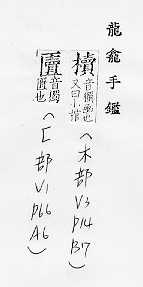 龍龕手鑑
櫝
又曰小棺
(木部 V3 P14 B17)
匵
音獨
匱也
(匚部 V1 P66 A6)